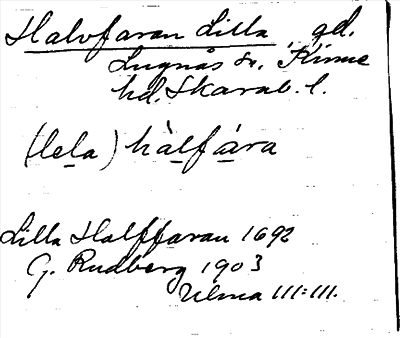 Halvfaran Lilla gd.
Lugnås sn. Kinne
hd. Skarab. l.
(lela) hàlfára
Lilla Halffaran 1692
G. Rudberg 1903
Ulma 111:111.